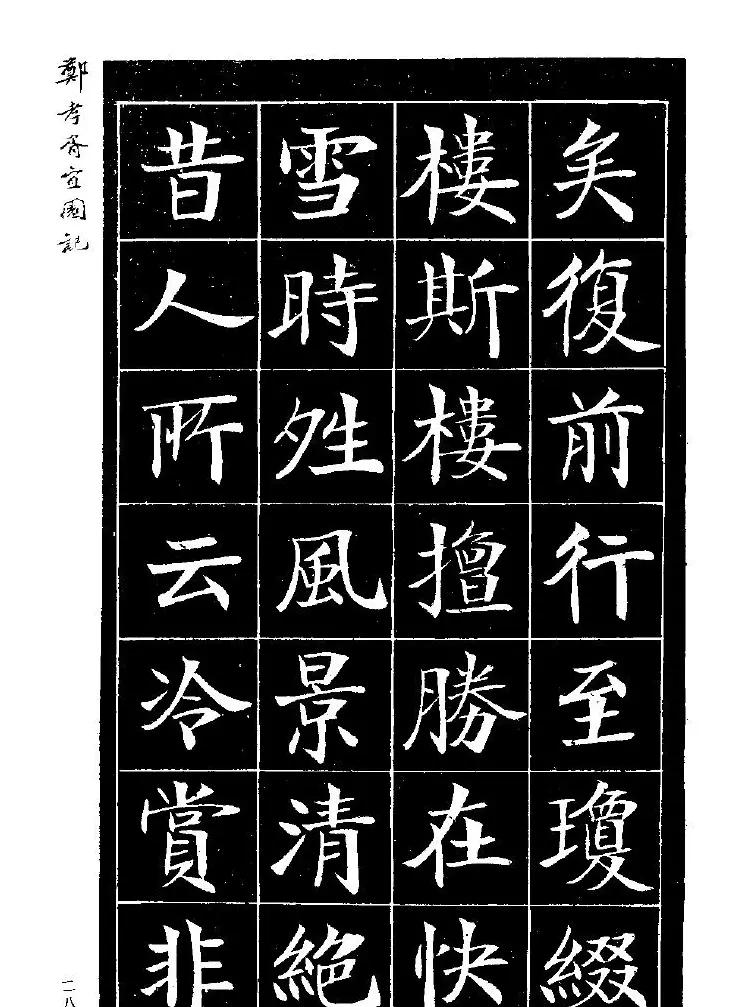 矣復前行至瓊綴
樓斯樓擅勝在快
雪時殅風景清絕
昔人所云冷賞非
鄭孝胥宜園記
二八